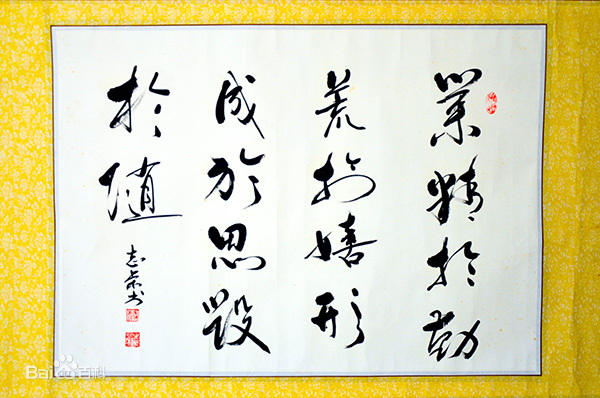 業精於勤
荒於嬉形
成於思毀
於隨
志書
Bai百科